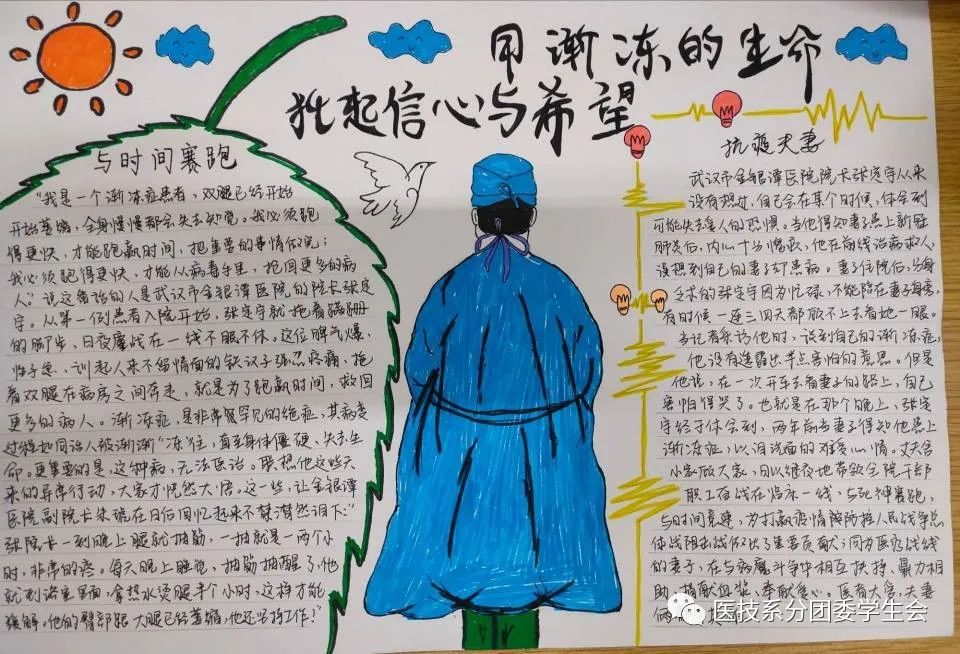 用渐冻的生命
拄起信心与希望
与时间赛跑
“我是一个渐冻症患者，双腿已经开始
开始萎缩，全身慢慢都会失去知觉。我必须跑
得更快，才能跑赢时间，把重要的事情做完；
我必须跑得更快，才能从病毒手里，抢回更多的病
人。”说这番话的人是武汉市金银潭医院的院长张定
宇。从第一例患者入院开始，张定宇就拖着蹒跚
的脚步，日夜鏖战在一线不眠不休。这位脾气爆，
性子急、训起人来不留情面的铁汉子强忍疼痛，拖
着双腿在病房之间奔走，就是为了跑赢时间，救回
更多的病人。渐冻症，是非常罕见的绝症，其病变
过程如同活人被渐渐“冻”住，直至身体僵硬、失去生
命。更重要的是，这种病，无法医治。联想他这些天
来的异常行动，大家才恍然大悟。这一些，让金银潭
医院副院长朱琉在日后回忆起来不禁潸然泪下：“
张院长一到晚上腿就抽筋，一抽就是一两个小
时，非常的疼。每天晚上睡觉，抽筋抽醒了，他
就到浴室里面，拿热水烫腿半个小时，这样才能
缓解。他的臀部跟大腿已经萎缩，他还坚持工作！”
抗疫夫妻
武汉市金银潭医院院长张定宇从来
没有想过，自己会在某个时候，体会到
可能失去爱人的恐惧。当他得知妻子患上新冠
肺炎后，内心十分愧歉，他在前线治病救人，
没想到自己的妻子却患病。妻子住院后，分身
乏术的张定宇因为忙碌，不能陪在妻子身旁，
有时候一连三四天都顾不上去看她一眼。
当记者采访他时，谈到自己的渐冻症，
他没有透露出半点害怕的意思。但是
他说，在一次开车去看妻子的路上，自己
害怕得哭了。也就是在那个晚上，张定
宇终于体会到，两年前当妻子得知他患上
渐冻症，以泪洗面的难受心情。丈夫舍
小家顾大家，日以继夜地带领全院干部
职工奋战在临床一线，与死神赛跑，
与时间竞速，为打赢疫情防控人民战争总
体战阻击战做出了重要贡献；同为医疗战线
的妻子，在与病魔斗争中相互扶持、鼎力相
助，捐献血浆，奉献爱心，医者大爱，夫妻
医技系分团委学生会